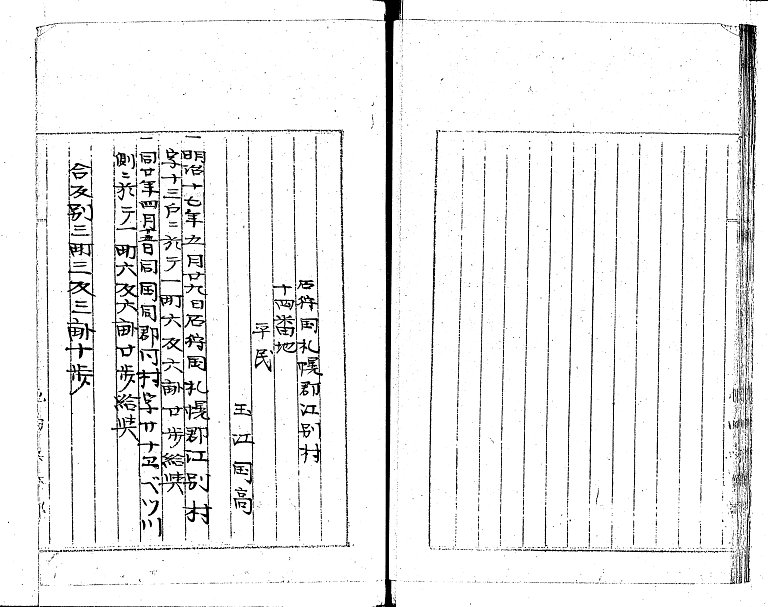 石狩国札幌郡江別村
十四番地
平民
玉江国高
一明治十七年五月廿九日石狩国札幌郡江別村
字十三戸ニ於テ一町六反六畝廿歩給與
一同廿年四月 日同国同郡同村字 ベツ川
側ニ於テ一町六反六畝廿歩給與
合反別三町三反三畝十歩